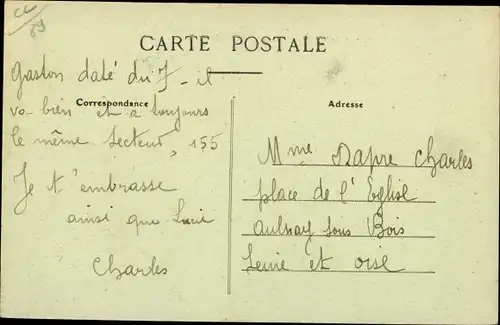 CC
89
CARTE POSTALE
Gaston daté du 7 - il
Correspondance
va bien et a toujours
le même secteur, 155
Je t'embrasse
ainsi que Lucie
Charles
Adresse
Mme Dapre Charles
place de l'Eglise
aulnay sous Bois
Seine et oise